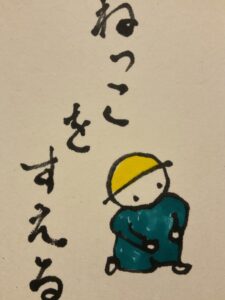 ねっこ
を
すえる